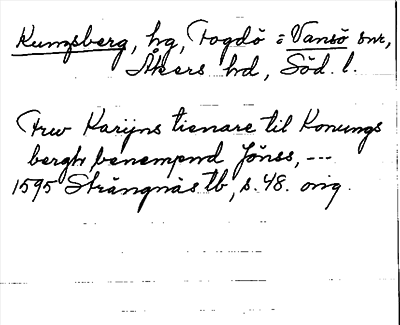 Kungsberg, hg, Fogdö o Vansö snr,
Åkers hd, Söd. l.
Frw Karijns tienare til Konungs
bergh benempnd Jönss, ---
1595 Strängnäs tb, s. 48. orig.